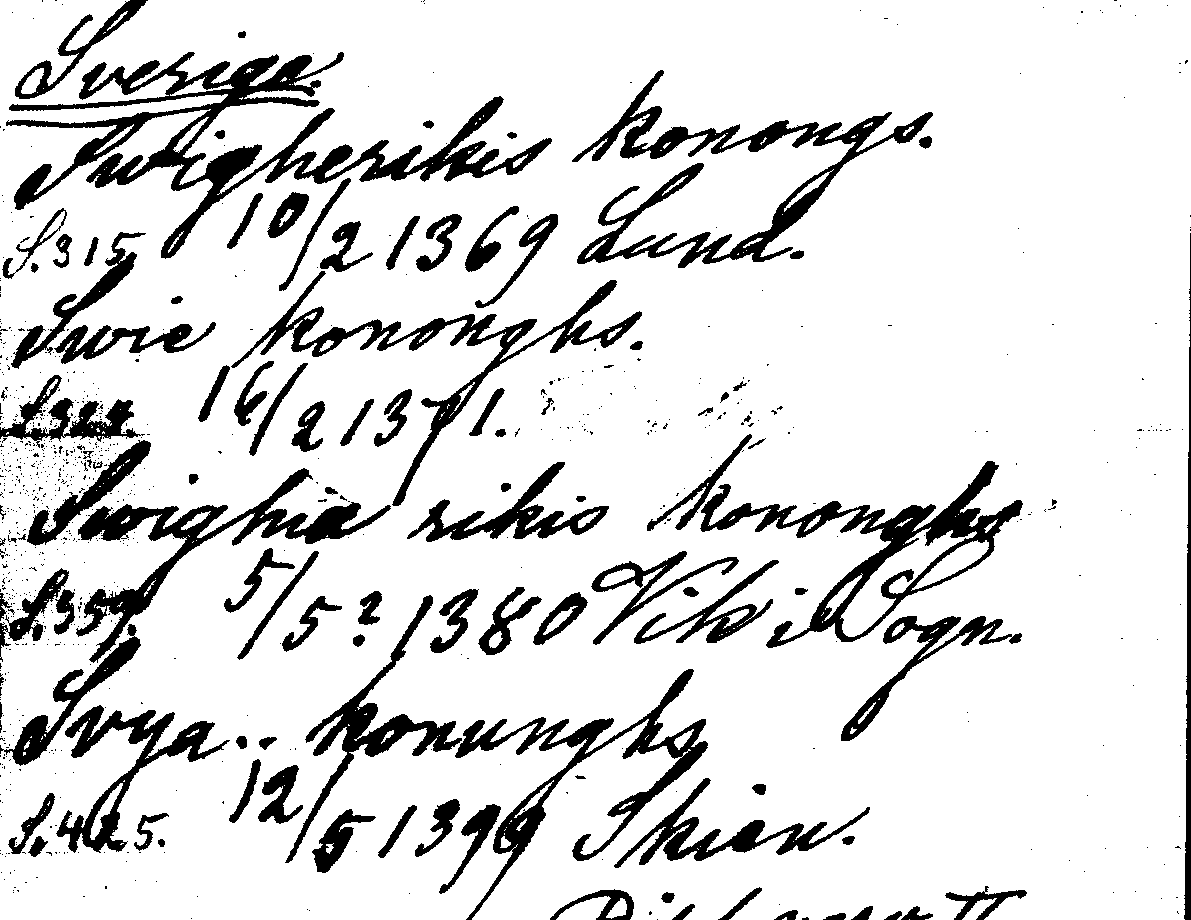 Sverige.
Swigherikis konongs.
S.315. 10/2 1369 Lund.
Swie kononghs.
S.324. 16/2 1371.
Swighia rikis kononghs
S.359. 5/5? 1380 Vik i Sogn.
Svya... konunghs
S.425. 12/5 1399 Skien.